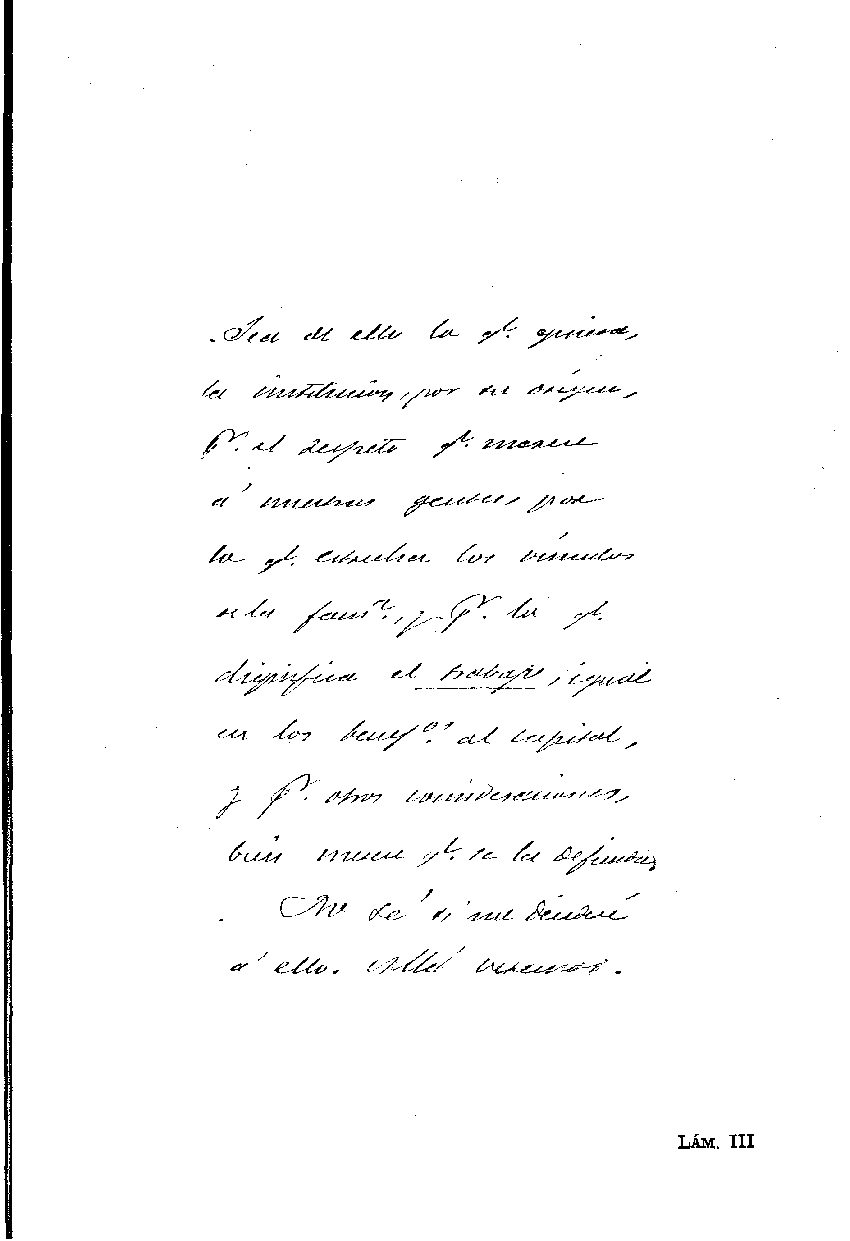 Sea de ello lo qe. quiera,
la institución, por su orígen,
pr. el respeto qe. merece
á nuestras gentes, por
lo qe. estrecha los vínculos
de la fama., y pr. lo qe.
dignifica el trabajo, igual
en los benefos. al capital,
y pr. otras consideraciones,
bien merece qe. se la defienda,
No sé si me decidiré
á ello. Allá veremos.
LÁM. III